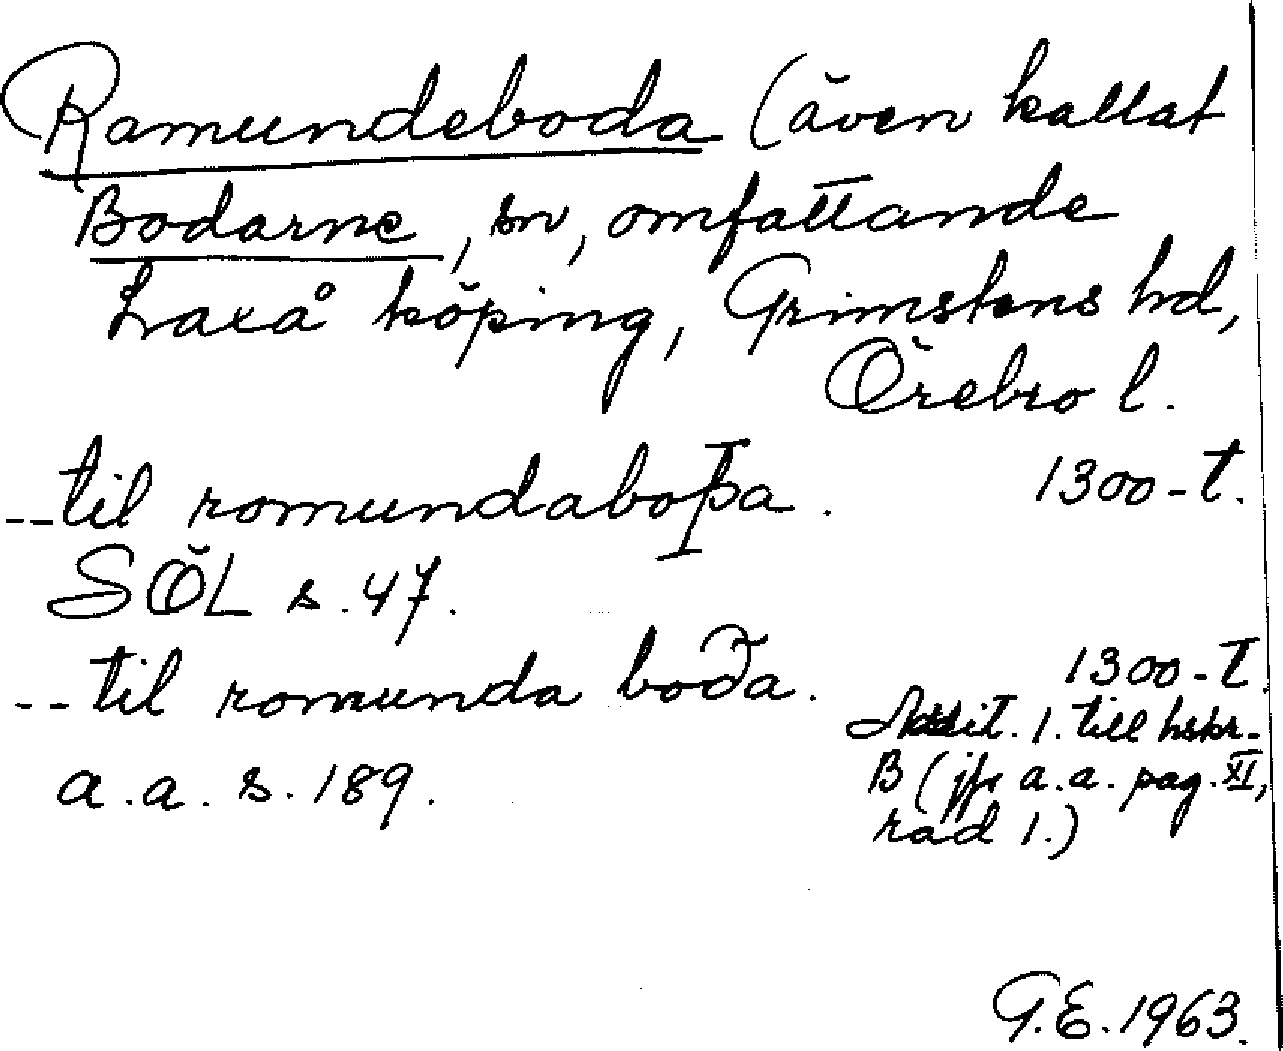 Ramundeboda (även kallat
Bodarne, sn, omfattande
Laxå köping, Grimstens hd,
Örebro l.
--til romundaboþa. 1300-t.
SÖL s. 47.
--til romunda boða. 1300-t.
Addit. 1. till hskr.
B (jfr a.a. pag. XI,
rad 1.)
a.a. s. 189.
G.E. 1963.